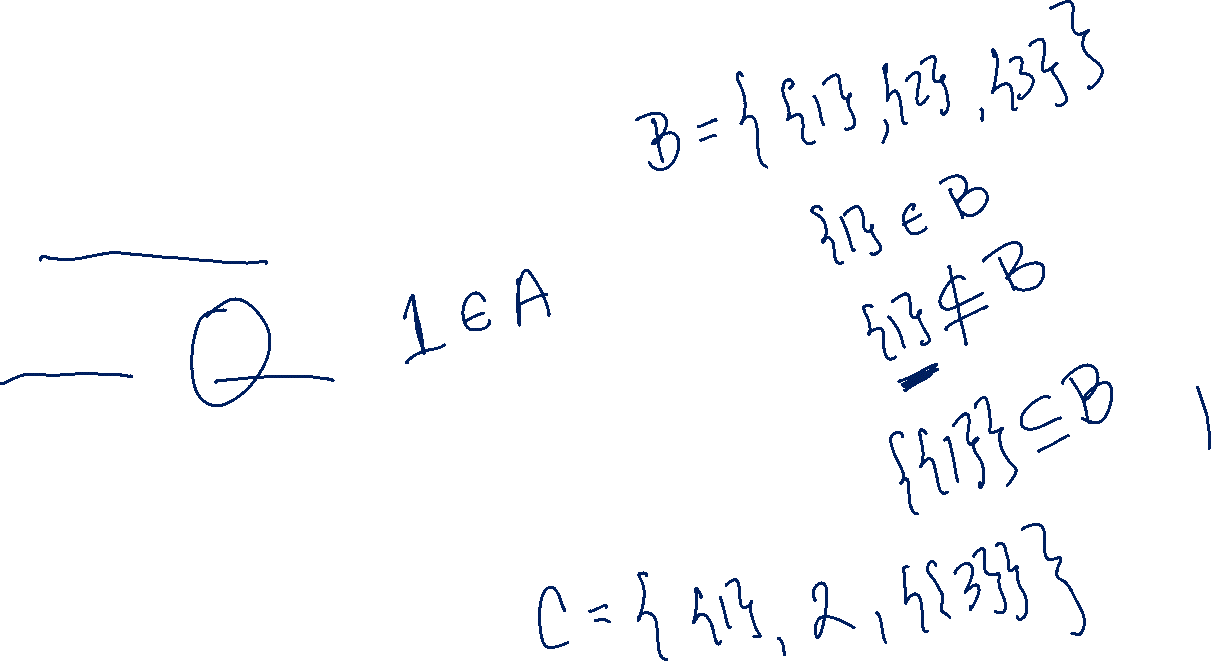 B = { {1}, {2}, {3} }
{1} ∈ B
1 ∈ A
{1} ⊈ B
{{1}} ⊆ B
C = { {1}, 2, {{3}} }